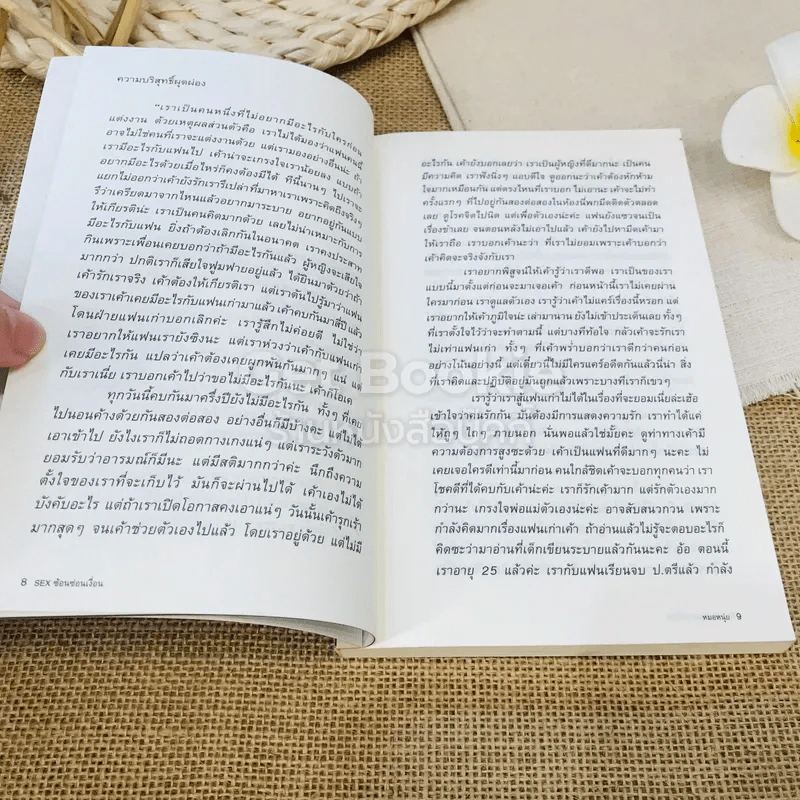 ความบริสุทธิ์ผุดผ่อง
"เราเป็นคนหนึ่งที่ไม่อยากมีอะไรกับใครก่อน
แต่งงาน ด้วยเหตุผลส่วนตัวคือ เราไม่ได้มองว่าแฟนคนนี้
อาจไม่ใช่คนที่เราจะแต่งงานด้วย แต่เรามองอย่างอื่นน่ะ ถ้า
เรามีอะไรกับแฟนไป เค้าน่าจะเกรงใจเราน้อยลง แบบถ้า
อยากมีอะไรด้วยเมื่อไหร่ก็คงต้องมีได้ ทีนี้นานๆ ไปเราจะ
แยกไม่ออกว่าเค้ายังรักเรารึเปล่าที่มาหาเราเพราะคิดถึงจริงๆ
รึว่าเครียดมาจากไหนแล้วอยากมาระบาย อยากอยู่กันแบบ
ให้เกียรติน่ะ เราเป็นคนคิดมากด้วย เลยไม่น่าเหมาะกับการ
มีอะไรกับแฟน ยิ่งถ้าต้องเลิกกันในอนาคต เราคงประสาท
กินเพราะเพื่อนเคยบอกว่าถ้ามีอะไรกันแล้ว ผู้หญิงจะเสียใจ
มากกว่า ปกติเราก็เสียใจฟูมฟายอยู่แล้ว ได้ยินมาด้วยว่าถ้า
เค้ารักเราจริง เค้าต้องให้เกียรติเรา แต่เราดันไปรู้มาว่าแฟน
ของเราเค้าเคยมีอะไรกับแฟนเก่ามาแล้ว เค้าคบกันมาสี่ปีแล้ว
โดนฝ่ายแฟนเก่าบอกเลิกค่ะ เรารู้สึกไม่ค่อยดี ไม่ใช่ว่า
เราอยากให้แฟนเรายังซิงนะ แต่เราห่วงว่าเค้ากับแฟนเก่า
เคยมีอะไรกัน แปลว่าเค้าต้องเคยผูกพันกันมากๆ แน่ แต่
กับเราเนี่ย เราบอกเค้าไปว่าขอไม่มีอะไรกันนะ เค้าก็โอเค
ทุกวันนี้คบกันมาครึ่งปียังไม่มีอะไรกัน ทั้งๆ ที่เคย
ไปนอนค้างด้วยกันสองต่อสอง อย่างอื่นก็มีบ้างคะ แต่ไม่ได้
เอาเข้าไป ยังไงเราก็ไม่ถอดกางเกงแน่ๆ แต่เราระวังตัวมาก
ยอมรับว่าอารมณ์ก็มีนะ แต่มีสติมากกว่าค่ะ นึกถึงความ
ตั้งใจของเราที่จะเก็บไว้ มันก็จะผ่านไปได้ เค้าเองไม่ได้
บังคับอะไร แต่ถ้าเราเปิดโอกาสคงเอาแน่ๆ วันนั้นเค้ารุกเร้า
มากสุดๆ จนเค้าช่วยตัวเองไปแล้ว โดยเราอยู่ด้วย แต่ไม่มี
8 SEX ซ้อนซ่อนเงื่อน
อะไรกัน เค้ายังบอกเลยว่า เราเป็นผู้หญิงที่ดีมากนะ เป็นคน
มีความคิด เราฟังนิ่งๆ แอบดีใจ ดูออกนะว่าเค้าต้องหักห้าม
ใจมากเหมือนกัน แต่ตรงไหนที่เราบอก ไม่เอานะ เค้าจะไม่ทำ
ครั้งแรกๆ ที่ไปอยู่กันสองต่อสองในห้องนี่พกมีดติดตัวตลอด
เลย ดูโรคจิตไปนิด แต่เพื่อตัวเองน่ะค่ะ แฟนยังแซวจนเป็น
เรื่องขำเลย จนตอนหลังไม่เอาไปแล้ว เค้ายังไปหามีดเค้ามา
ให้เราถือ เราบอกเค้านะว่า ที่เราไม่ยอมเพราะเค้าบอกว่า
เค้าคิดจะจริงจังกับเรา
เราอยากพิสูจน์ให้เค้ารู้ว่าเราดีพอ เราเป็นของเรา
แบบนี้มาตั้งแต่ก่อนจะมาเจอเค้า ก่อนหน้านี้เราไม่เคยผ่าน
ใครมาก่อน เราดูแลตัวเอง เรารู้ว่าเค้าไม่แคร์เรื่องนี้หรอก แต่
เราอยากให้เค้าภูมิใจน่ะ เล่ามานาน ยังไม่เข้าประเด็นเลย ทั้งๆ
ที่เราตั้งใจไว้ว่าจะทำตามนี้ แต่บางทีท้อใจ กลัวเค้าจะรักเรา
ไม่เท่าแฟนเก่า ทั้งๆ ที่เค้าพร่ำบอกว่าเราดีกว่าคนก่อน
อย่างโน้นอย่างนี้ แต่เดี๋ยวนี้ไม่มีใครแคร์อดีตกันแล้วนี่น่า สิ่ง
ที่เราคิดและปฏิบัติอยู่มันถูกแล้วเพราะบางทีเราก็เขวๆ
เรารู้ว่าเราสู้แฟนเก่าไม่ได้ในเรื่องที่จะยอมเนี่ยล่ะเฮ้อ
เข้าใจว่าคนรักกัน มันต้องมีการแสดงความรัก เราทำได้แค่
ให้ถูๆ ไถๆ ภายนอก นั่นพอแล้วใช่มั้ยคะ ดูท่าทางเค้ามี
ความต้องการสูงซะด้วย เค้าเป็นแฟนที่ดีมากๆ นะคะ ไม่
เคยเจอใครดีเท่านี้มาก่อน คนใกล้ชิดเค้าจะบอกทุกคนว่า เรา
โชคดีที่ได้คบกับเค้าน่ะค่ะ เราก็รักเค้ามาก แต่รักตัวเองมาก
กว่านะ เกรงใจพ่อแม่ตัวเองน่ะค่ะ อาจสับสนกวน เพราะ
กำลังคิดมากเรื่องแฟนเก่าเค้า ถ้าอ่านแล้วไม่รู้จะตอบอะไรก็
คิดซะว่ามาอ่านที่เด็กเขียนระบายแล้วกันนะคะ อ้อ ตอนนี้
เราอายุ 25 แล้วค่ะ เรากับแฟนเรียนจบ ป.ตรีแล้ว กำลัง
หมอหนุ่ย 9